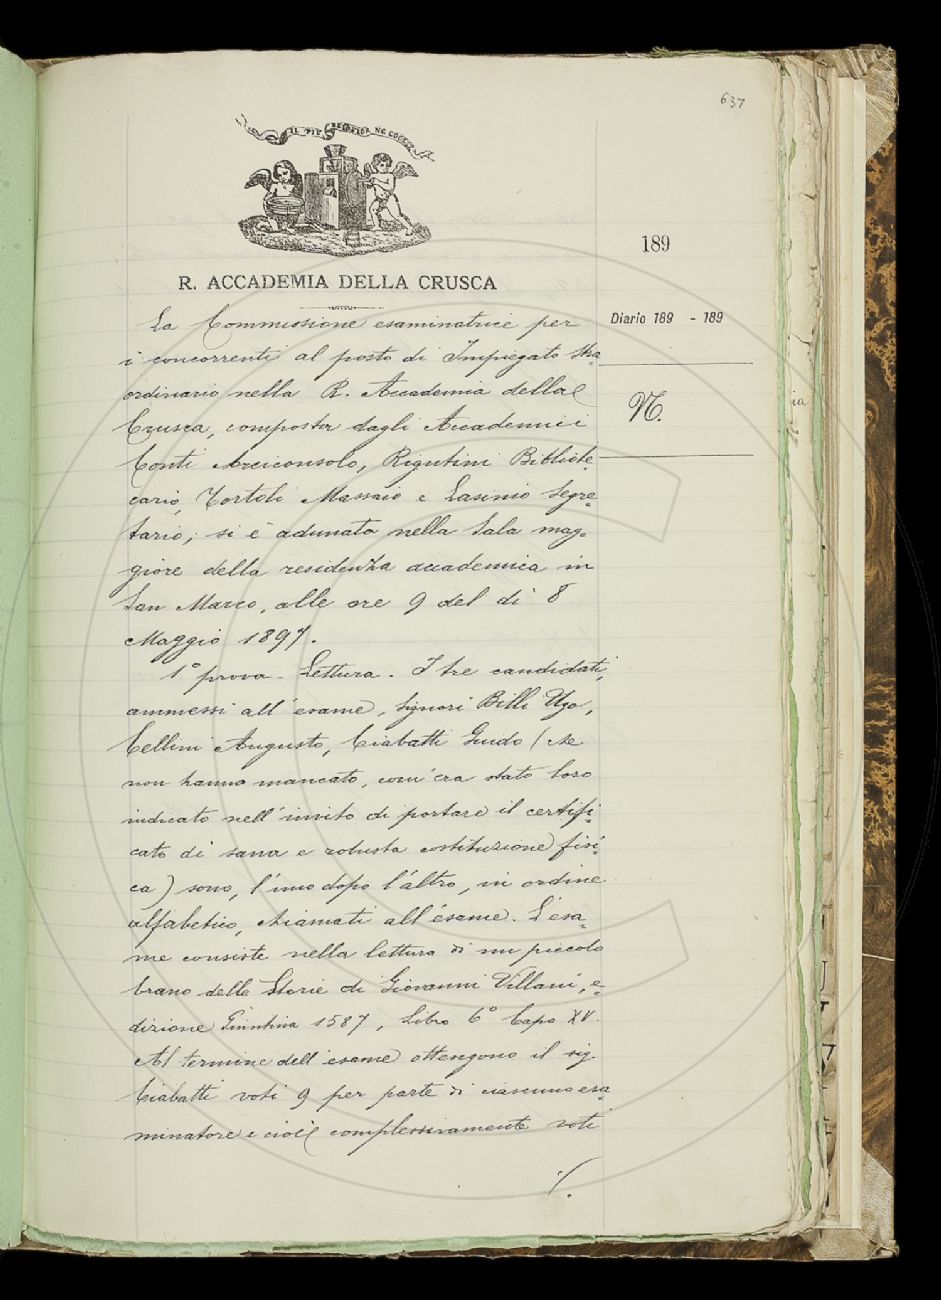 637
IL PIÙ BEL FIOR NE COGLIE
189
R. ACCADEMIA DELLA CRUSCA
Diario 189 - 189
N.
La Commissione esaminatrice per
i concorrenti al posto di Impiegato stra
ordinario nella R. Accademia della
Crusca, composta dagli Accademici
Conti Arciconsolo, Rigutini Bibliote-
cario, Tortoli Massaio e Lasinio Segre-
tario, si è adunata nella Sala mag-
giore della residenza accademica in
San Marco, alle ore 9 del dì 8
Maggio 1897.
1° prova - Lettura. I tre candidati,
ammessi all'esame, Signori Billi Ugo,
Cellini Augusto, Ciabatti Guido (che
non hanno mancato, com'era stato loro
indicato nell'invito di portare il certifi-
cato di sana e robusta costituzione fisi-
ca) sono, l'uno dopo l'altro, in ordine
alfabetico, chiamati all'esame. L'esa-
me consiste nella lettura di un piccolo
brano delle Storie di Giovanni Villani, e-
dizione Giuntina 1587, Libro 6° Capo XV.
Al termine dell'esame ottengono il sig.
Ciabatti voti 9 per parte di ciascuno esa-
minatore e cioè complessivamente voti
./.